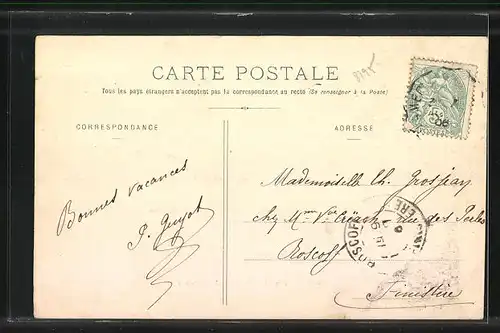 CARTE POSTALE
3195
Tous les pays étrangers n'acceptent pas la correspondance au recto (Se renseigner à la Poste)
CORRESPONDANCE
ADRESSE
Bonnes vacances
P. Guyot
Mademoiselle Ch. Grosjean
chez Mme Vve Créach rue des
Roscoff
Finistère
ROSCOFF